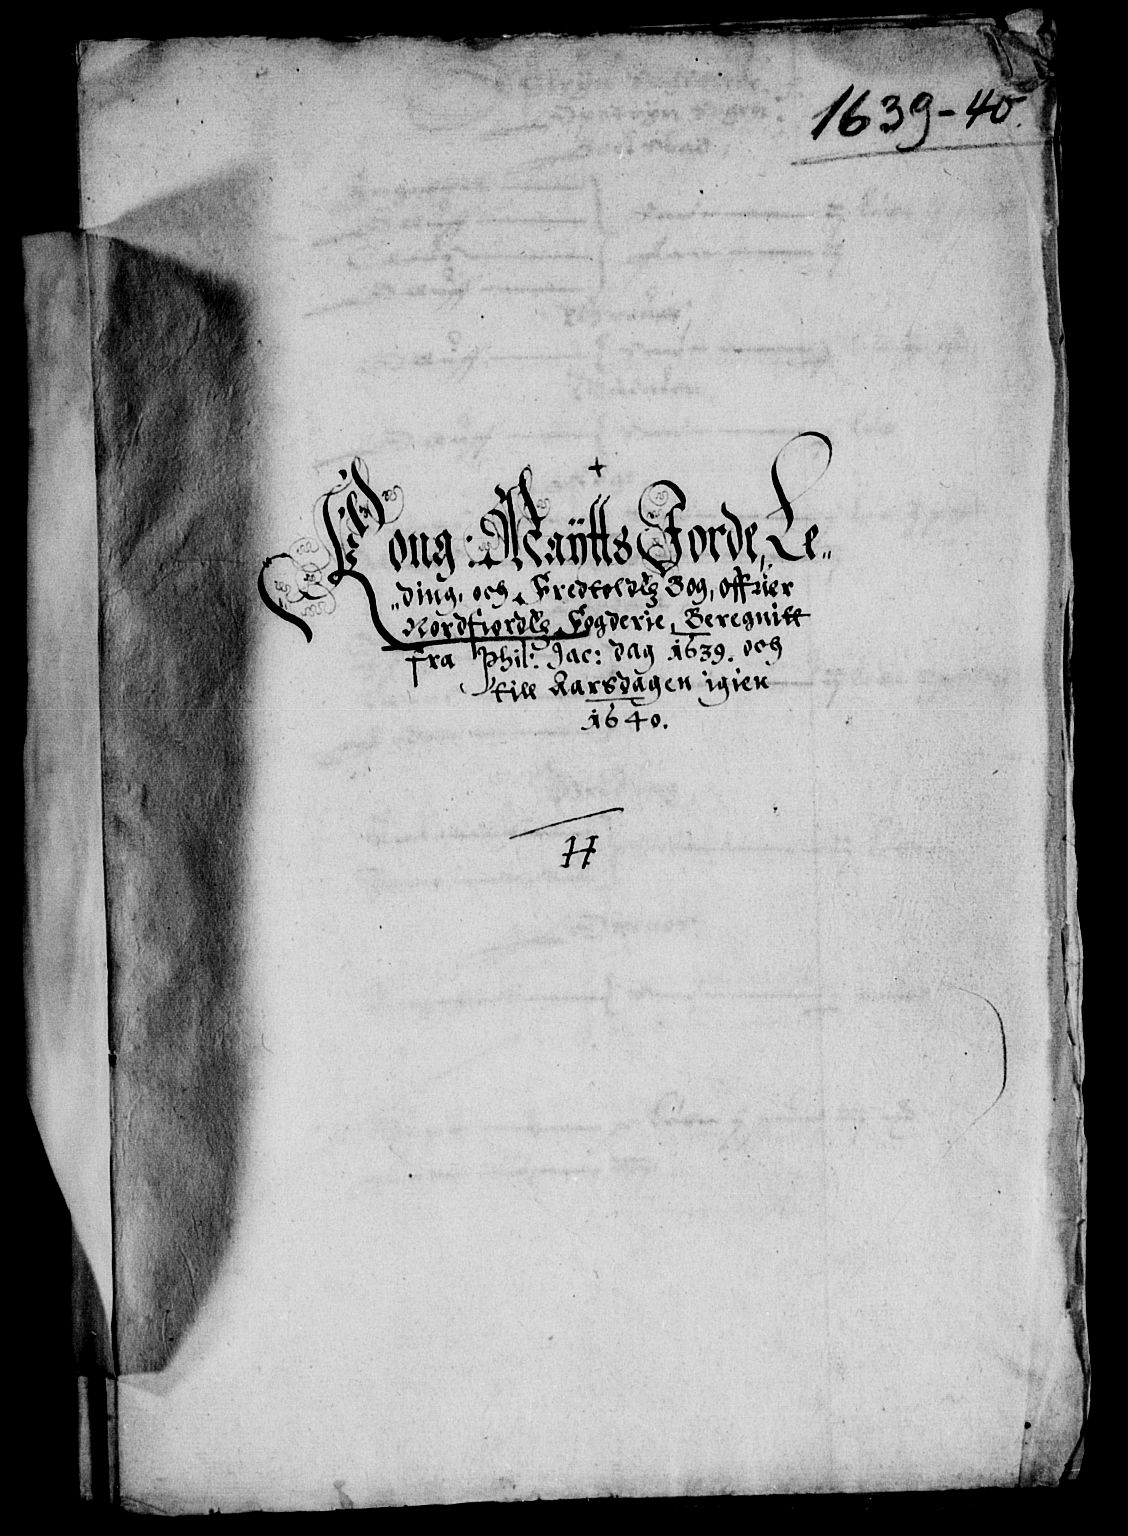 1639-40.
+
Kong: Maÿtts Jorde, Le„
„ding, och Fredtoldtz Bog, offuer
Nordfiordtz Fogderie, Beregnitt
fra Phil: Jac: dag 1639. och
till Aarsdagen igien
1640.
H